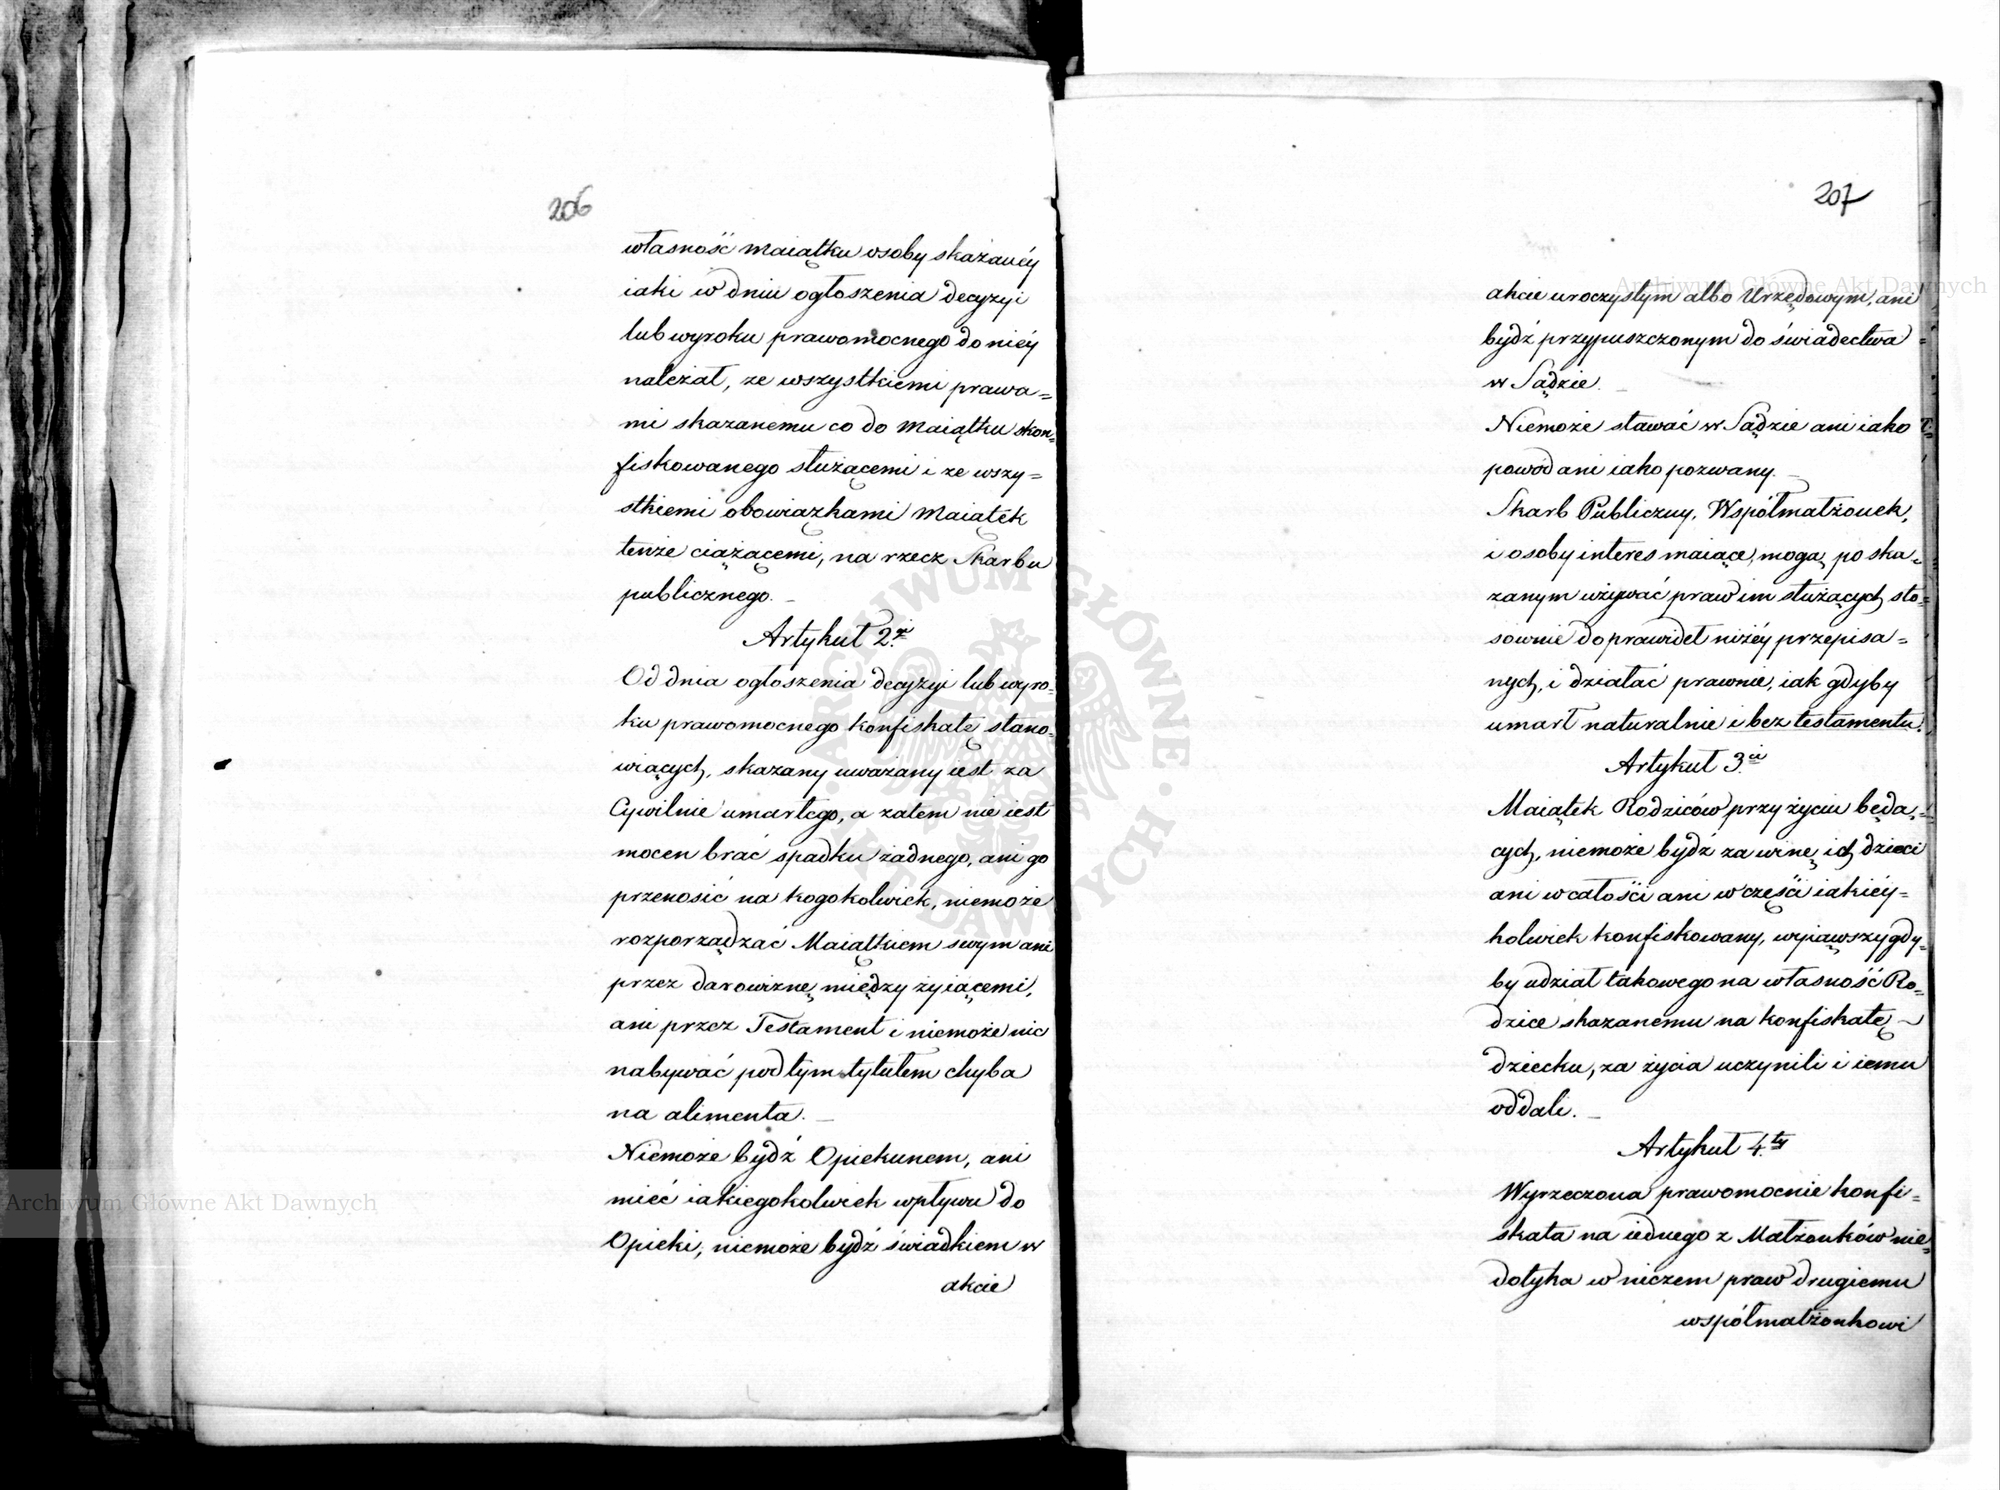 206
własność maiątku osoby skazanéy
iaki w dniu ogłoszenia decyzyi
lub wyroku prawomocnego do niéy
należał, ze wszystkiemi prawa=
mi skazanemu co do maiątku skon=
fiskowanego służącemi i ze wszy=
stkiemi obowiązkami maiątek
tenże ciążącemi, na rzecz Skarbu
publicznego. _
Artykuł 2.gi
Od dnia ogłoszenia decyzyi lub wyro=
ku prawomocnego konfiskatę stano=
wiących, skazany uważany iest za
Cywilnie umarłego, a zatem nie iest
mocen brać spadku żadnego, ani go
przenosić na kogokolwiek, niemoże
rozporządzać Maiątkiem swym ani
przez darowiznę między żyiącemi,
ani przez Testament i niemoże nic
nabywać pod tym tytułem chyba
na alimenta. _
Niemoże bydź Opiekunem, ani
mieć iakiegokolwiek wpływu do
Opieki; niemoże bydź świadkiem w
akcie
207
akcie uroczystym albo Urzędowym, ani
bydź przypuszczonym do świadectwa
w Sądzie. _
Niemoże stawać w Sądzie ani iako
powód ani iako pozwany. _
Skarb Publiczny, Współmałżonek,
i osoby interes maiące, mogą po ska=
zanym używać praw im służących sto=
sownie do prawideł niżéy przepisa=
nych, i działać prawnie, iak gdyby
umarł naturalnie i bez testamentu.
Artykuł 3.ci
Maiątek Rodziców przy życiu będą=
cych, niemoże bydź za winę ich dzieci
ani w całości ani w części iakiéy=
kolwiek konfiskowany, wyiąwszy gdy=
by udział takowego na własność Ro=
dzice skazanemu na konfiskatę
dziecku, za życia uczynili i iemu
oddali. _
Artykuł 4.ty
Wyrzeczona prawomocnie konfi=
skata na iednego z Małżonków nie=
dotyka w niczem praw drugiemu
współmałżonkowi
Archiwum Główne Akt Dawnych
Archiwum Główne Akt Dawnych
ARCHIWUM GŁÓWNE AKT DAWNYCH